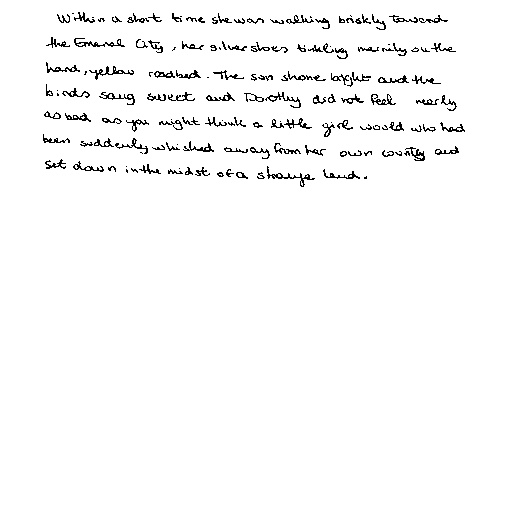 Within a short time she was walking briskly toward
the Emerald City, her silver shoes tinkling merrily on the
hard, yellow roadbed. The sun shone bright and the
birds sang sweet and Dorothy did not feel nearly
as bad as you might think a little girl would who had
been suddenly whisked away from her own country and
set down in the midst of a strange land.